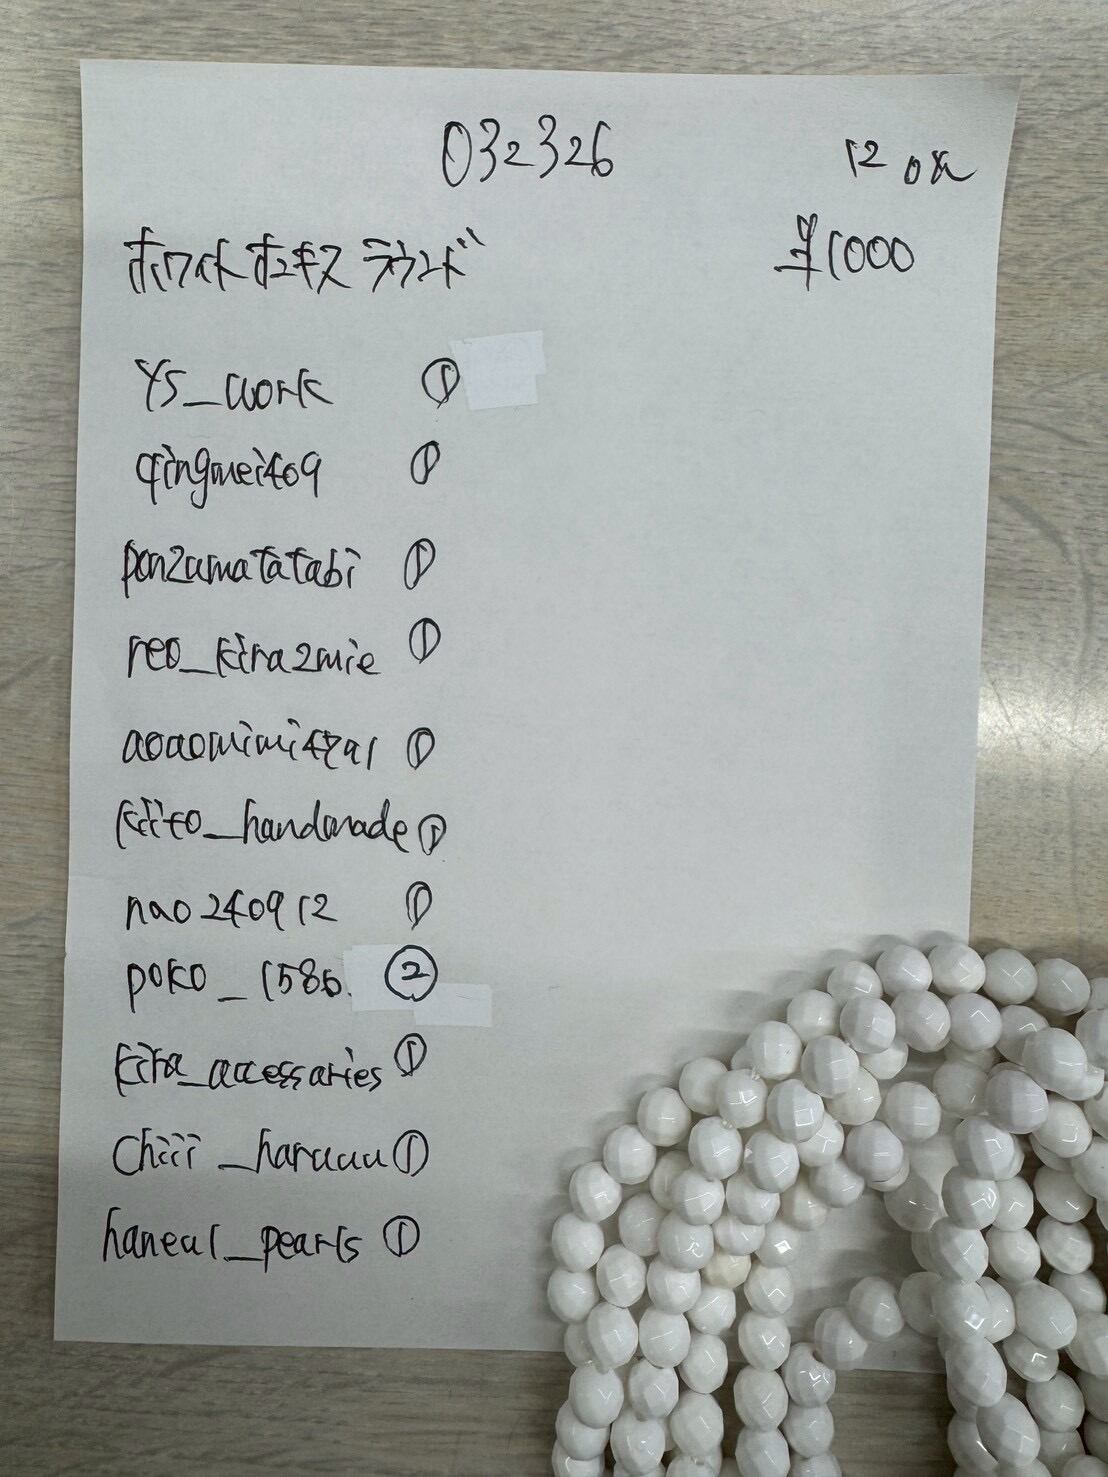 032326
12 ok
ホワイトオニキス ラウンド
¥1000
YS_work ①
qingmei409 ①
ponzamatatabi ①
reo_kira2mie ①
①
kiito_handmade ①
nao240912 ①
poko_1586. ②
kira_accessaries ①
chiii_haruuu ①
haneul_pearls ①